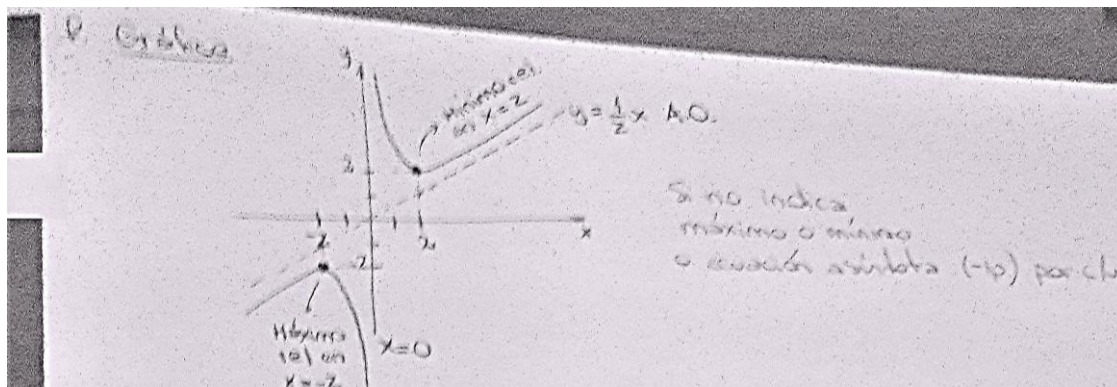 Gráfica
y
Mínimo rel.
en x=2
y=½x A.O.
2
-2
2
x
-2
Máximo
rel en
x=-2
x=0
Si no indica
máximo o mínimo
o ecuación asíntota (-1p) por c/u